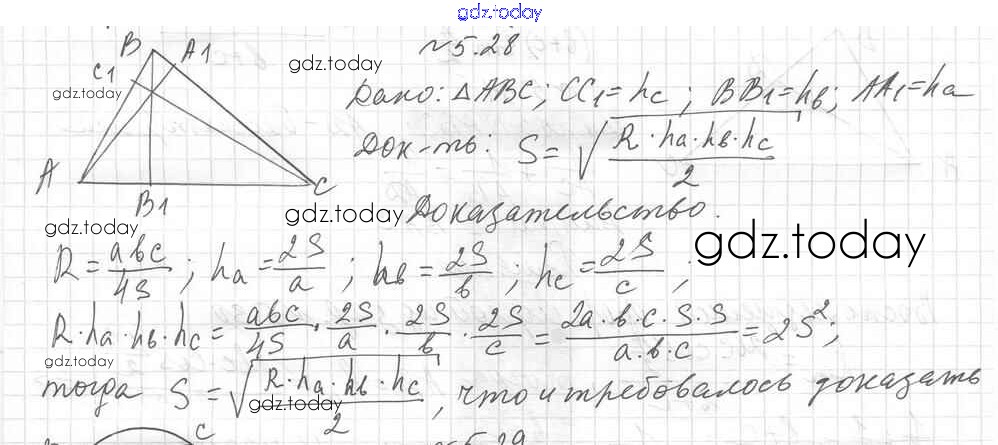 gdz.today
№5.28
B
A1
C1
gdz.today
gdz.today
Дано: △ABC; CC₁=hc; BB₁=hв; AA₁=ha
Док-ть: S=√(R·ha·hв·hc/2)
A
C
B1
gdz.today
gdz.today
Доказательство.
gdz.today
R=aвc/4S; ha=2S/a; hв=2S/в; hc=2S/c;
R·ha·hв·hc=aвc/4S·2S/a·2S/в·2S/c=2a·в·c·S·S/a·в·c=2S²;
gdz.today
тогда S=√(R·ha·hв·hc/2), что и требовалось доказать
gdz.today
C
№5.29